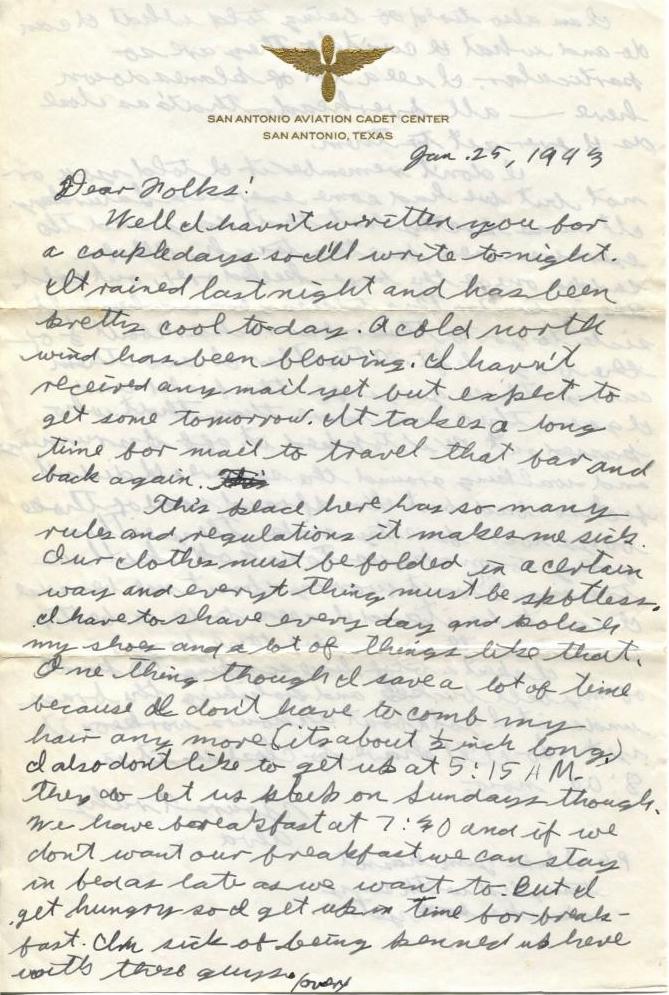 SAN ANTONIO AVIATION CADET CENTER
SAN ANTONIO, TEXAS
Jan. 25, 1943
Dear Folks!
Well I havn't written you for
a couple days so I'll write tonight.
It rained last night and has been
pretty cool today. A cold north
wind has been blowing. I havn't
received any mail yet but expect to
get some tomorrow. It takes a long
time for mail to travel that far and
back again. This
This place here has so many
rules and regulations it makes me sick.
Our clothes must be folded in a certain
way and everyt thing must be spotless.
I have to shave every day and polish
my shoes and a lot of things like that.
One thing though I save a lot of time
because I don't have to comb my
hair any more (its about ½ inch long.)
I also don't like to get up at 5:15 A.M.
They do let us sleep on Sundays though.
We have breakfast at 7:40 and if we
don't want our breakfast we can stay
in bed as late as we want to. But I
get hungry so I get up in time for break-
fast. I'm sick of being penned up here
with these guys. (over)